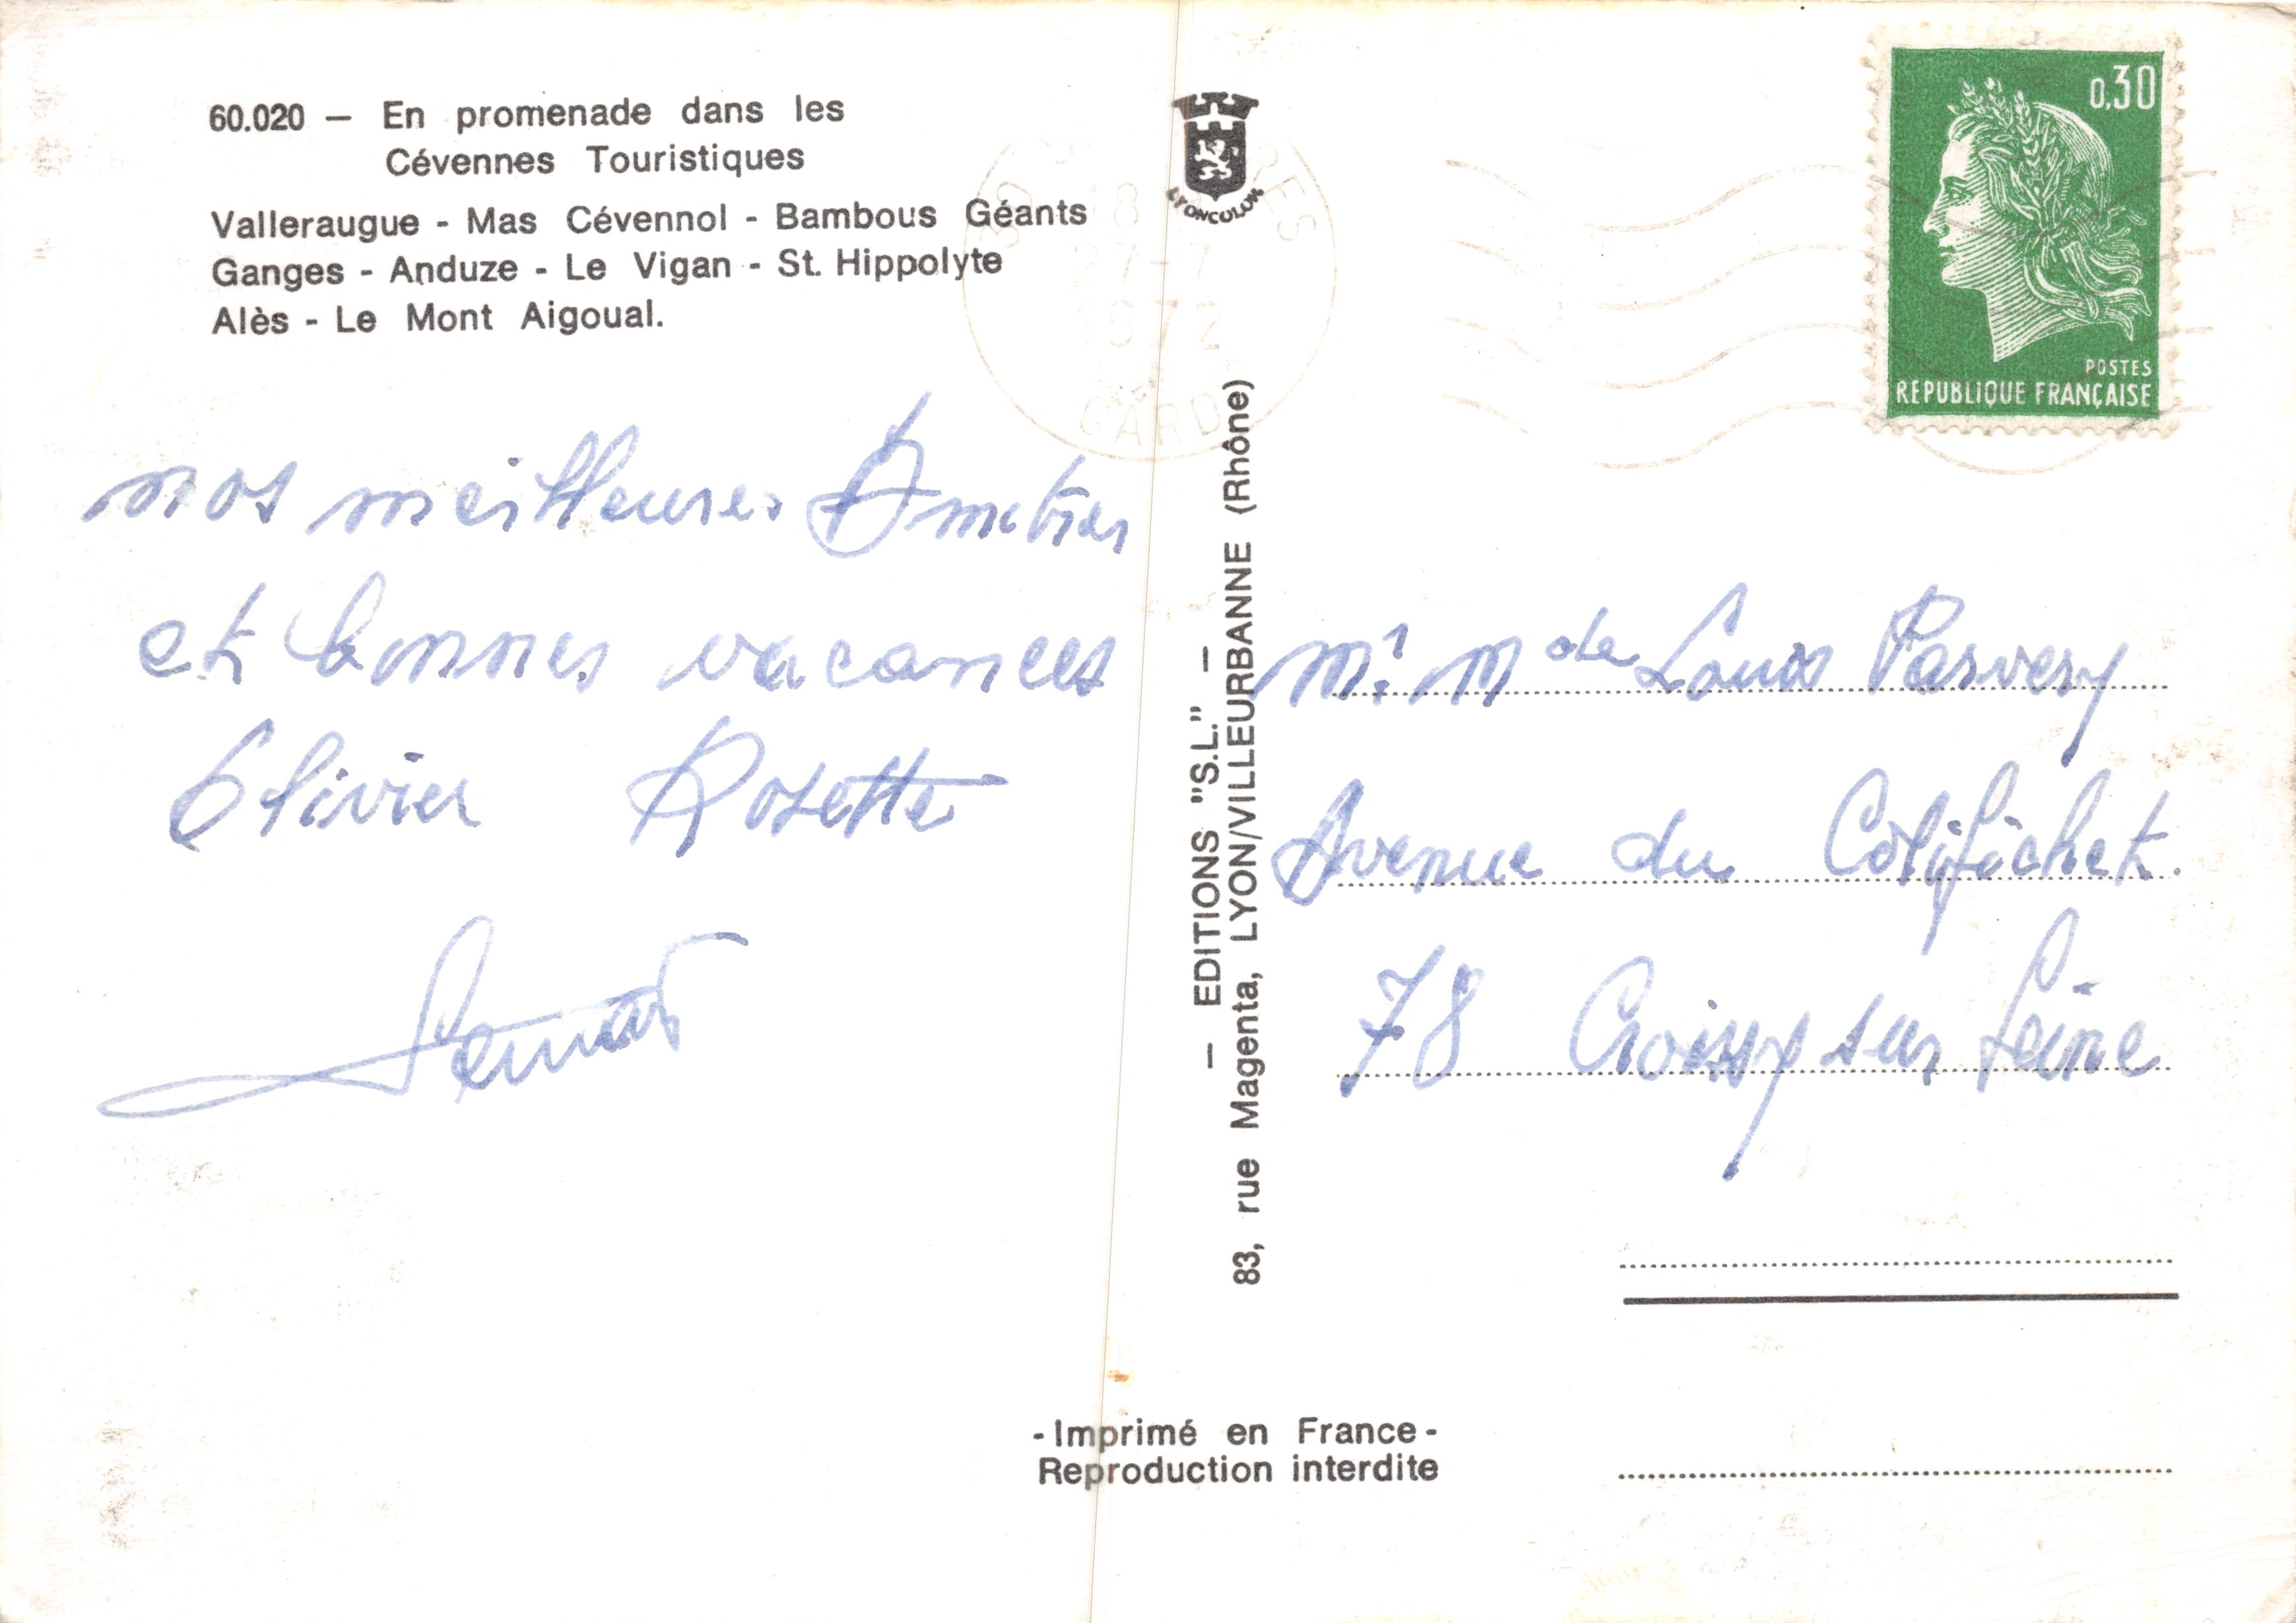 60.020 — En promenade dans les
Cévennes Touristiques
Valleraugue - Mas Cévennol - Bambous Géants
Ganges - Anduze - Le Vigan - St. Hippolyte
Alès - Le Mont Aigoual.
nos meilleures Amitiés
et bonnes vacances
Olivier Rosette
LYONCOLOR
18
27-7
1972
GARD
— EDITIONS "S.L." —
83, rue Magenta, LYON/VILLEURBANNE (Rhône)
0,30
POSTES
REPUBLIQUE FRANÇAISE
Mr Mde Louis Parvery
Avenue du Colifichet.
78 Croissy sur Seine
- Imprimé en France -
Reproduction interdite